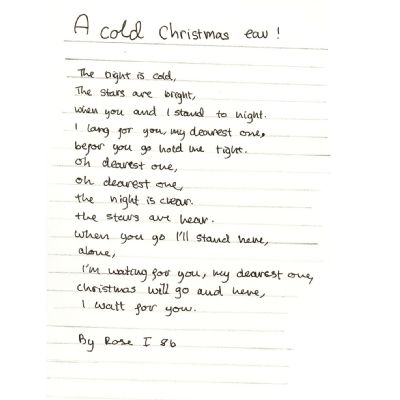 A cold Christmas eav!
The night is cold,
The stars are bright,
when you and I stand to night.
I lang for you, my dearest one,
befor you go hold me tight.
oh dearest one,
oh dearest one,
the night is clear.
the stars are hear.
when you go I'll stand here,
alone,
I'm wating for you, my dearest one,
christmas will go and here,
I watt for you.
By Rose I 8b